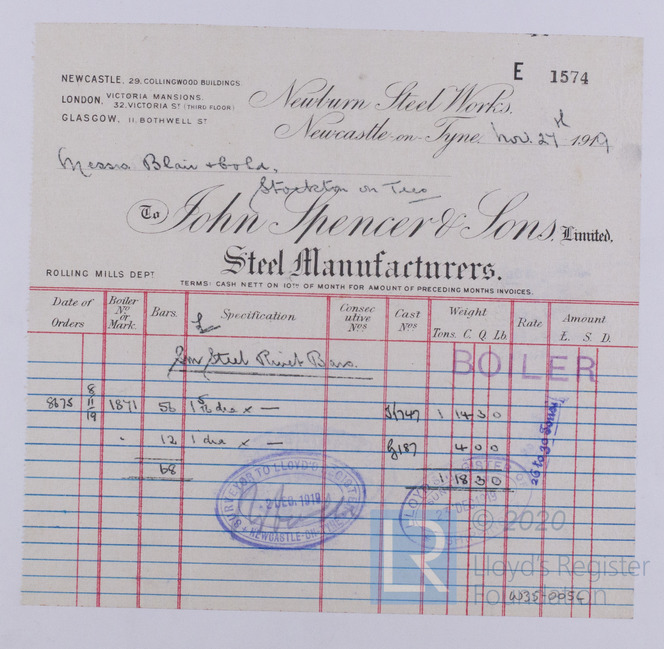 E 1574
NEWCASTLE, 29, COLLINGWOOD BUILDINGS.
LONDON, VICTORIA MANSIONS, 32, VICTORIA ST (THIRD FLOOR)
GLASGOW, 11, BOTHWELL ST
Newburn Steel Works,
Newcastle-on-Tyne, Nov. 27th 1919
Messrs Blair & Co Ld,
Stockton on Tees
To John Spencer & Sons, Limited.
Steel Manufacturers.
ROLLING MILLS DEPT
TERMS: CASH NETT ON 10TH OF MONTH FOR AMOUNT OF PRECEDING MONTHS INVOICES.
Date of Orders Boiler No or Mark. Bars. Specification Consecutive Nos Cast Nos Weight Tons. C. Q. Lb. Rate Amount £. S. D.
Steel Rivet Bars.
BOILER
8675 8/11/19 1871 56 1 5/16 dia x — 1747 1 14 3 0
" 12 1 dia x — 187 4 0 0
68 1 18 3 0
SURVEYORS TO LLOYD'S REGISTER
2 DEC. 1919
NEWCASTLE-ON-TYNE
© 2020
LR
Lloyd's Register
Foundation
W35-0054